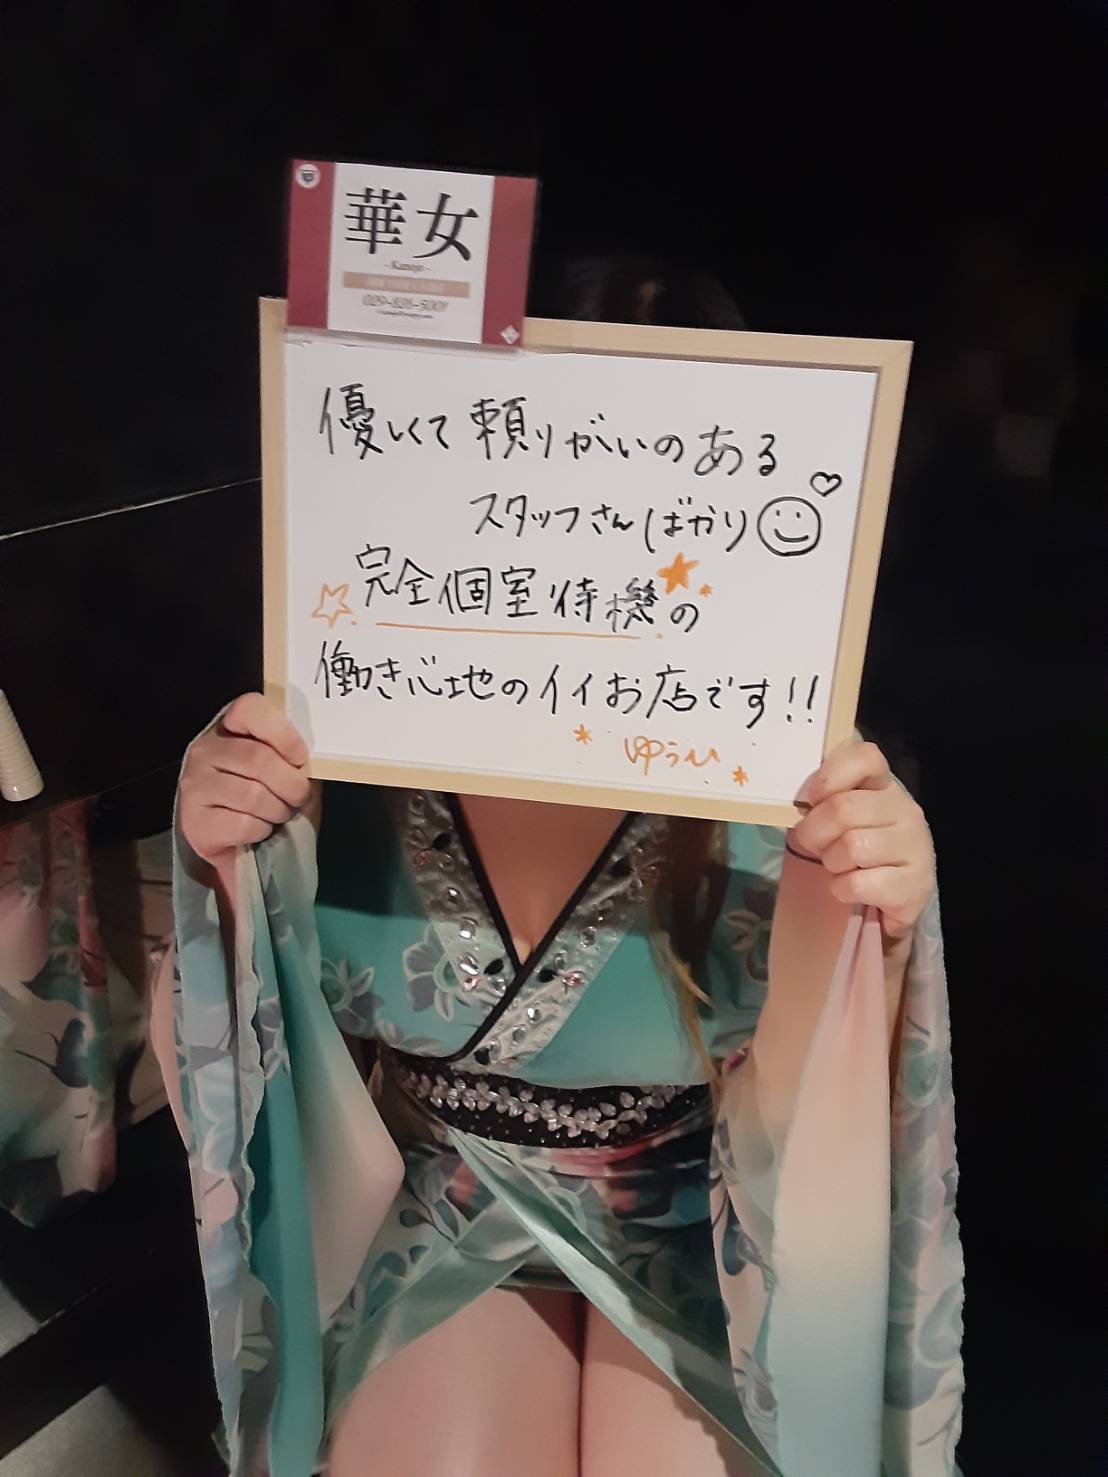 華女
- Kanojo -
優しくて頼りがいのある
スタッフさんばかり
完全個室待機の
働き心地のイイお店です!!
ゆうひ